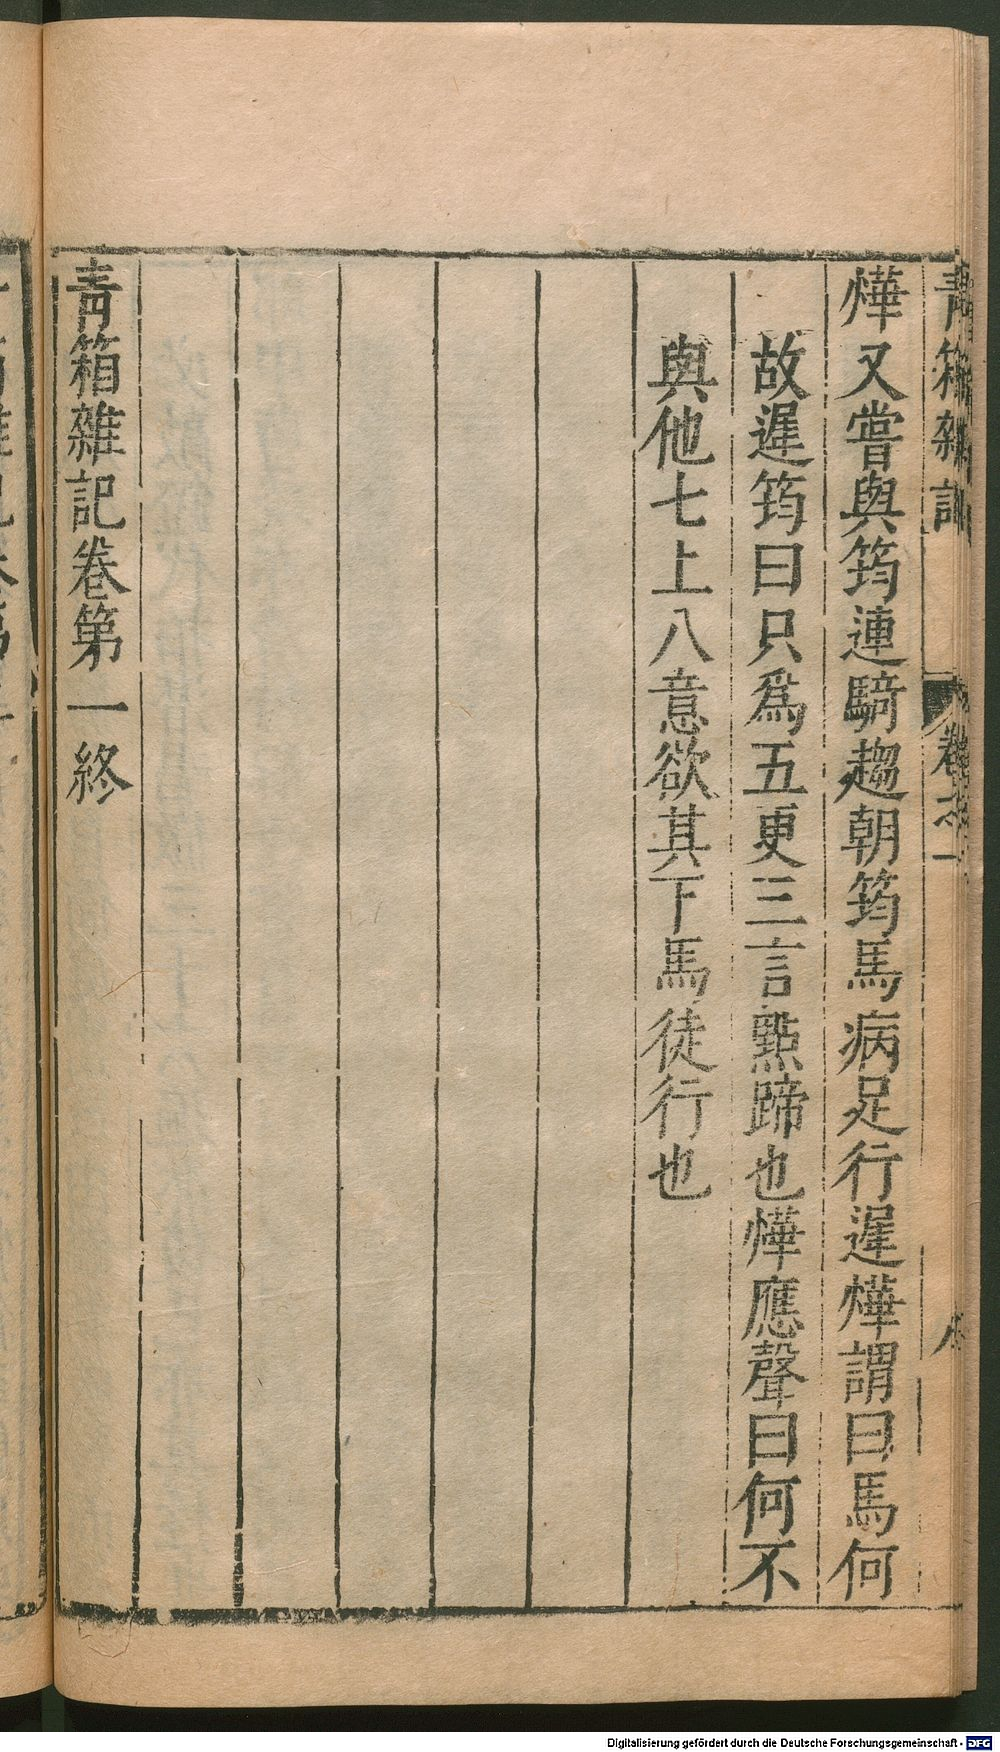 青箱雜記 卷之一
燁又嘗與筠連騎趨朝筠馬病足行遲燁謂曰馬何
故遲筠曰只爲五更三言㸃蹄也燁應聲曰何不
與他七上八意欲其下馬徒行也
青箱雜記卷第一終
Digitalisierung gefördert durch die Deutsche Forschungsgemeinschaft - DFG